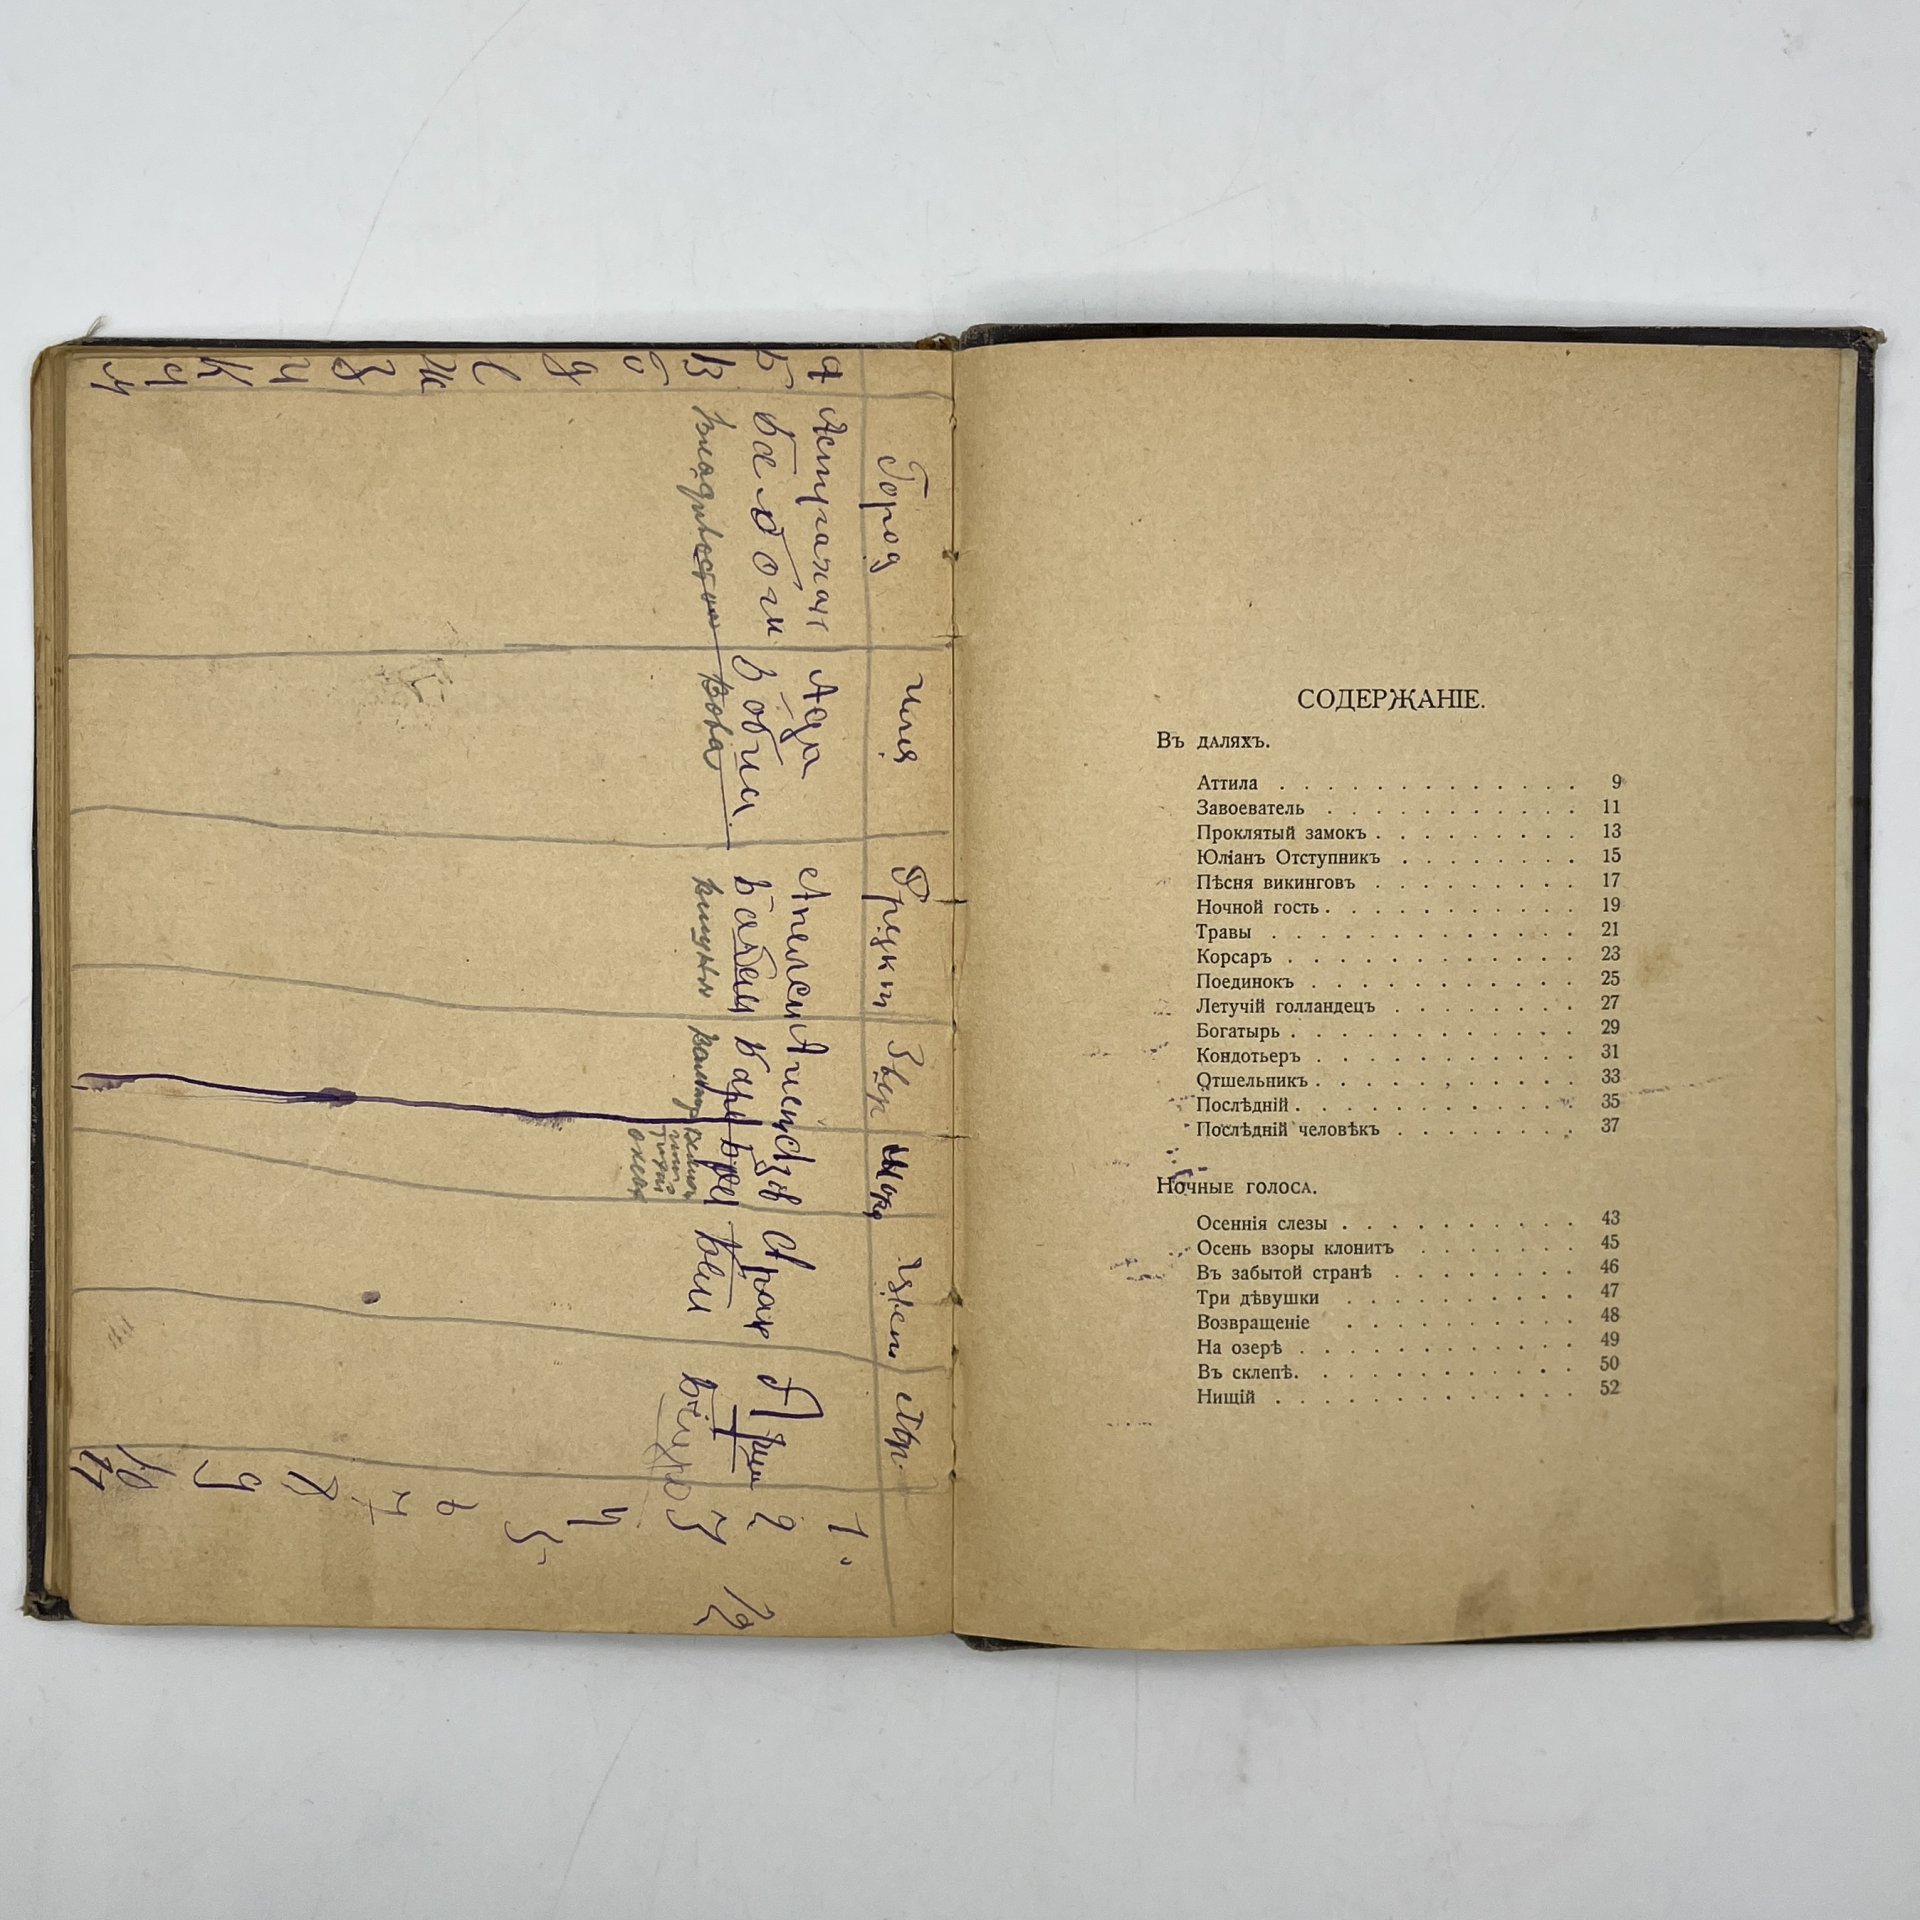 Город Имя Фрукт Звер Море Цвет
А Астрахан Ада Апельсин Азов
Б Бобик
В Владивосток Вова вишня
Г
Д
Е
Ж
З
И
К
1.
2
3
4
5
6
7
8
9
10
11
12
СОДЕРЖАНІЕ.
Въ даляхъ.
Аттила . . . . . . . . . . . . . 9
Завоеватель . . . . . . . . . . . 11
Проклятый замокъ . . . . . . . . . 13
Юліанъ Отступникъ . . . . . . . . 15
Пѣсня викинговъ . . . . . . . . . 17
Ночной гость . . . . . . . . . . . 19
Травы . . . . . . . . . . . . . 21
Корсаръ . . . . . . . . . . . . 23
Поединокъ . . . . . . . . . . . 25
Летучій голландецъ . . . . . . . . 27
Богатырь . . . . . . . . . . . . 29
Кондотьеръ . . . . . . . . . . . 31
Отшельникъ . . . . . . . . . . . 33
Послѣдній . . . . . . . . . . . . 35
Послѣдній человѣкъ . . . . . . . . 37
Ночные голоса.
Осеннія слезы . . . . . . . . . . 43
Осень взоры клонитъ . . . . . . . 45
Въ забытой странѣ . . . . . . . . 46
Три дѣвушки . . . . . . . . . . 47
Возвращеніе . . . . . . . . . . 48
На озерѣ . . . . . . . . . . . . 49
Въ склепѣ. . . . . . . . . . . . 50
Нищій . . . . . . . . . . . . . 52